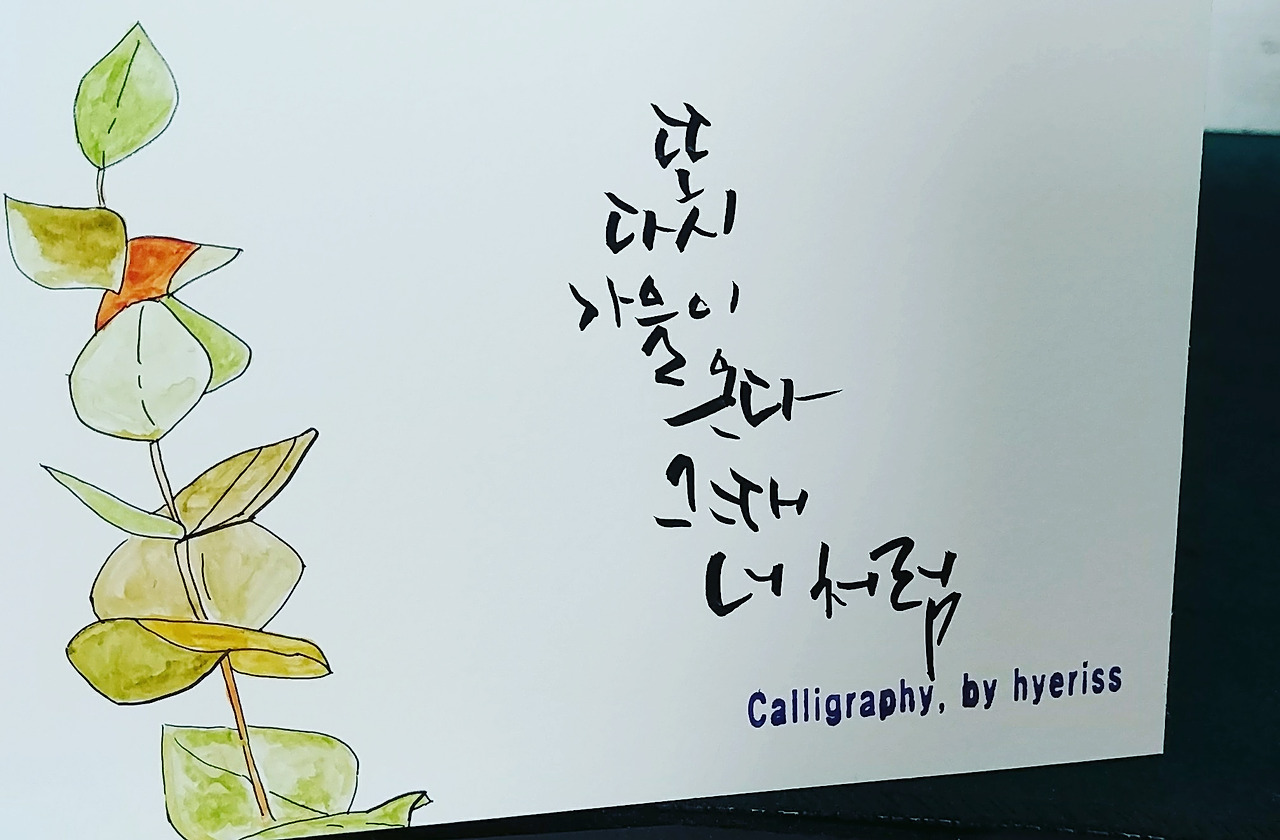 또
다시
가을이
온다
그때
너처럼
Calligraphy, by hyeriss